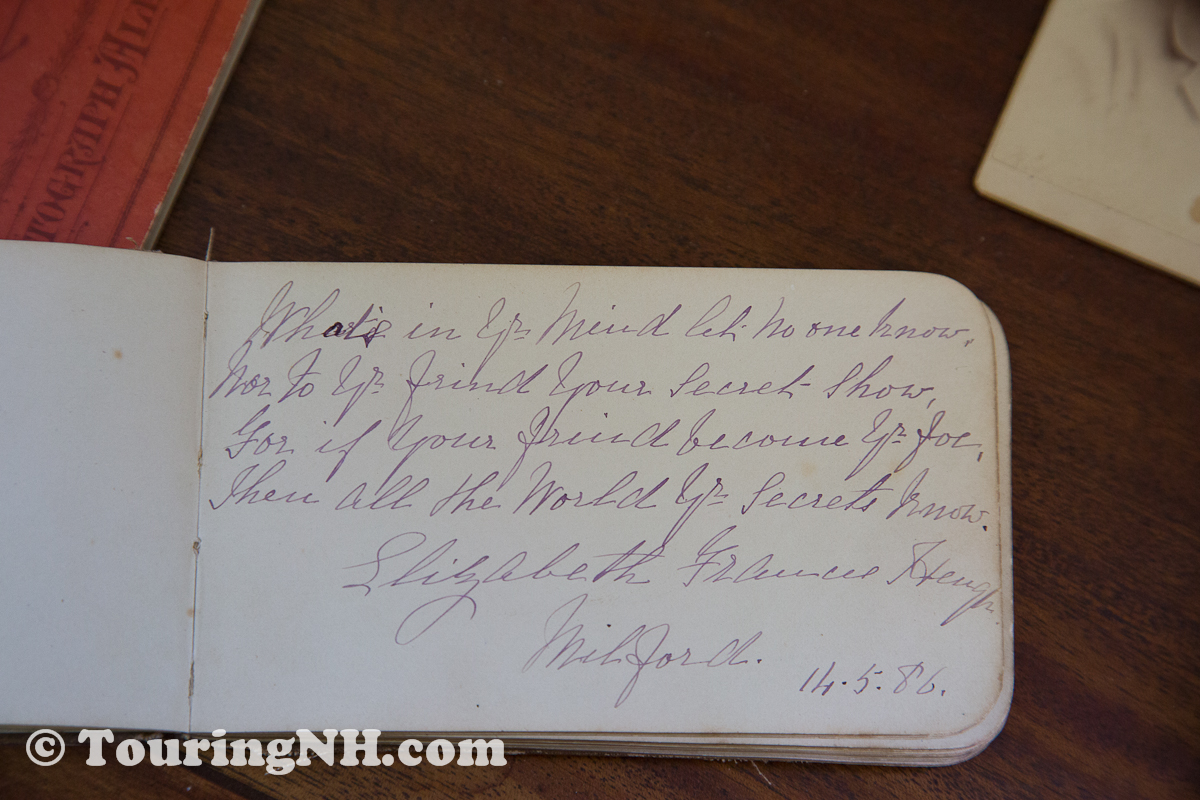 TOGRAPH AL
What's in Yr Mind let no one know,
Nor to Yr frind Your Secret Show,
For if Your frind become Yr foe,
Then all the World Yr Secrets know.
Elizabeth Frances
Milford.
14.5.86.
© TouringNH.com